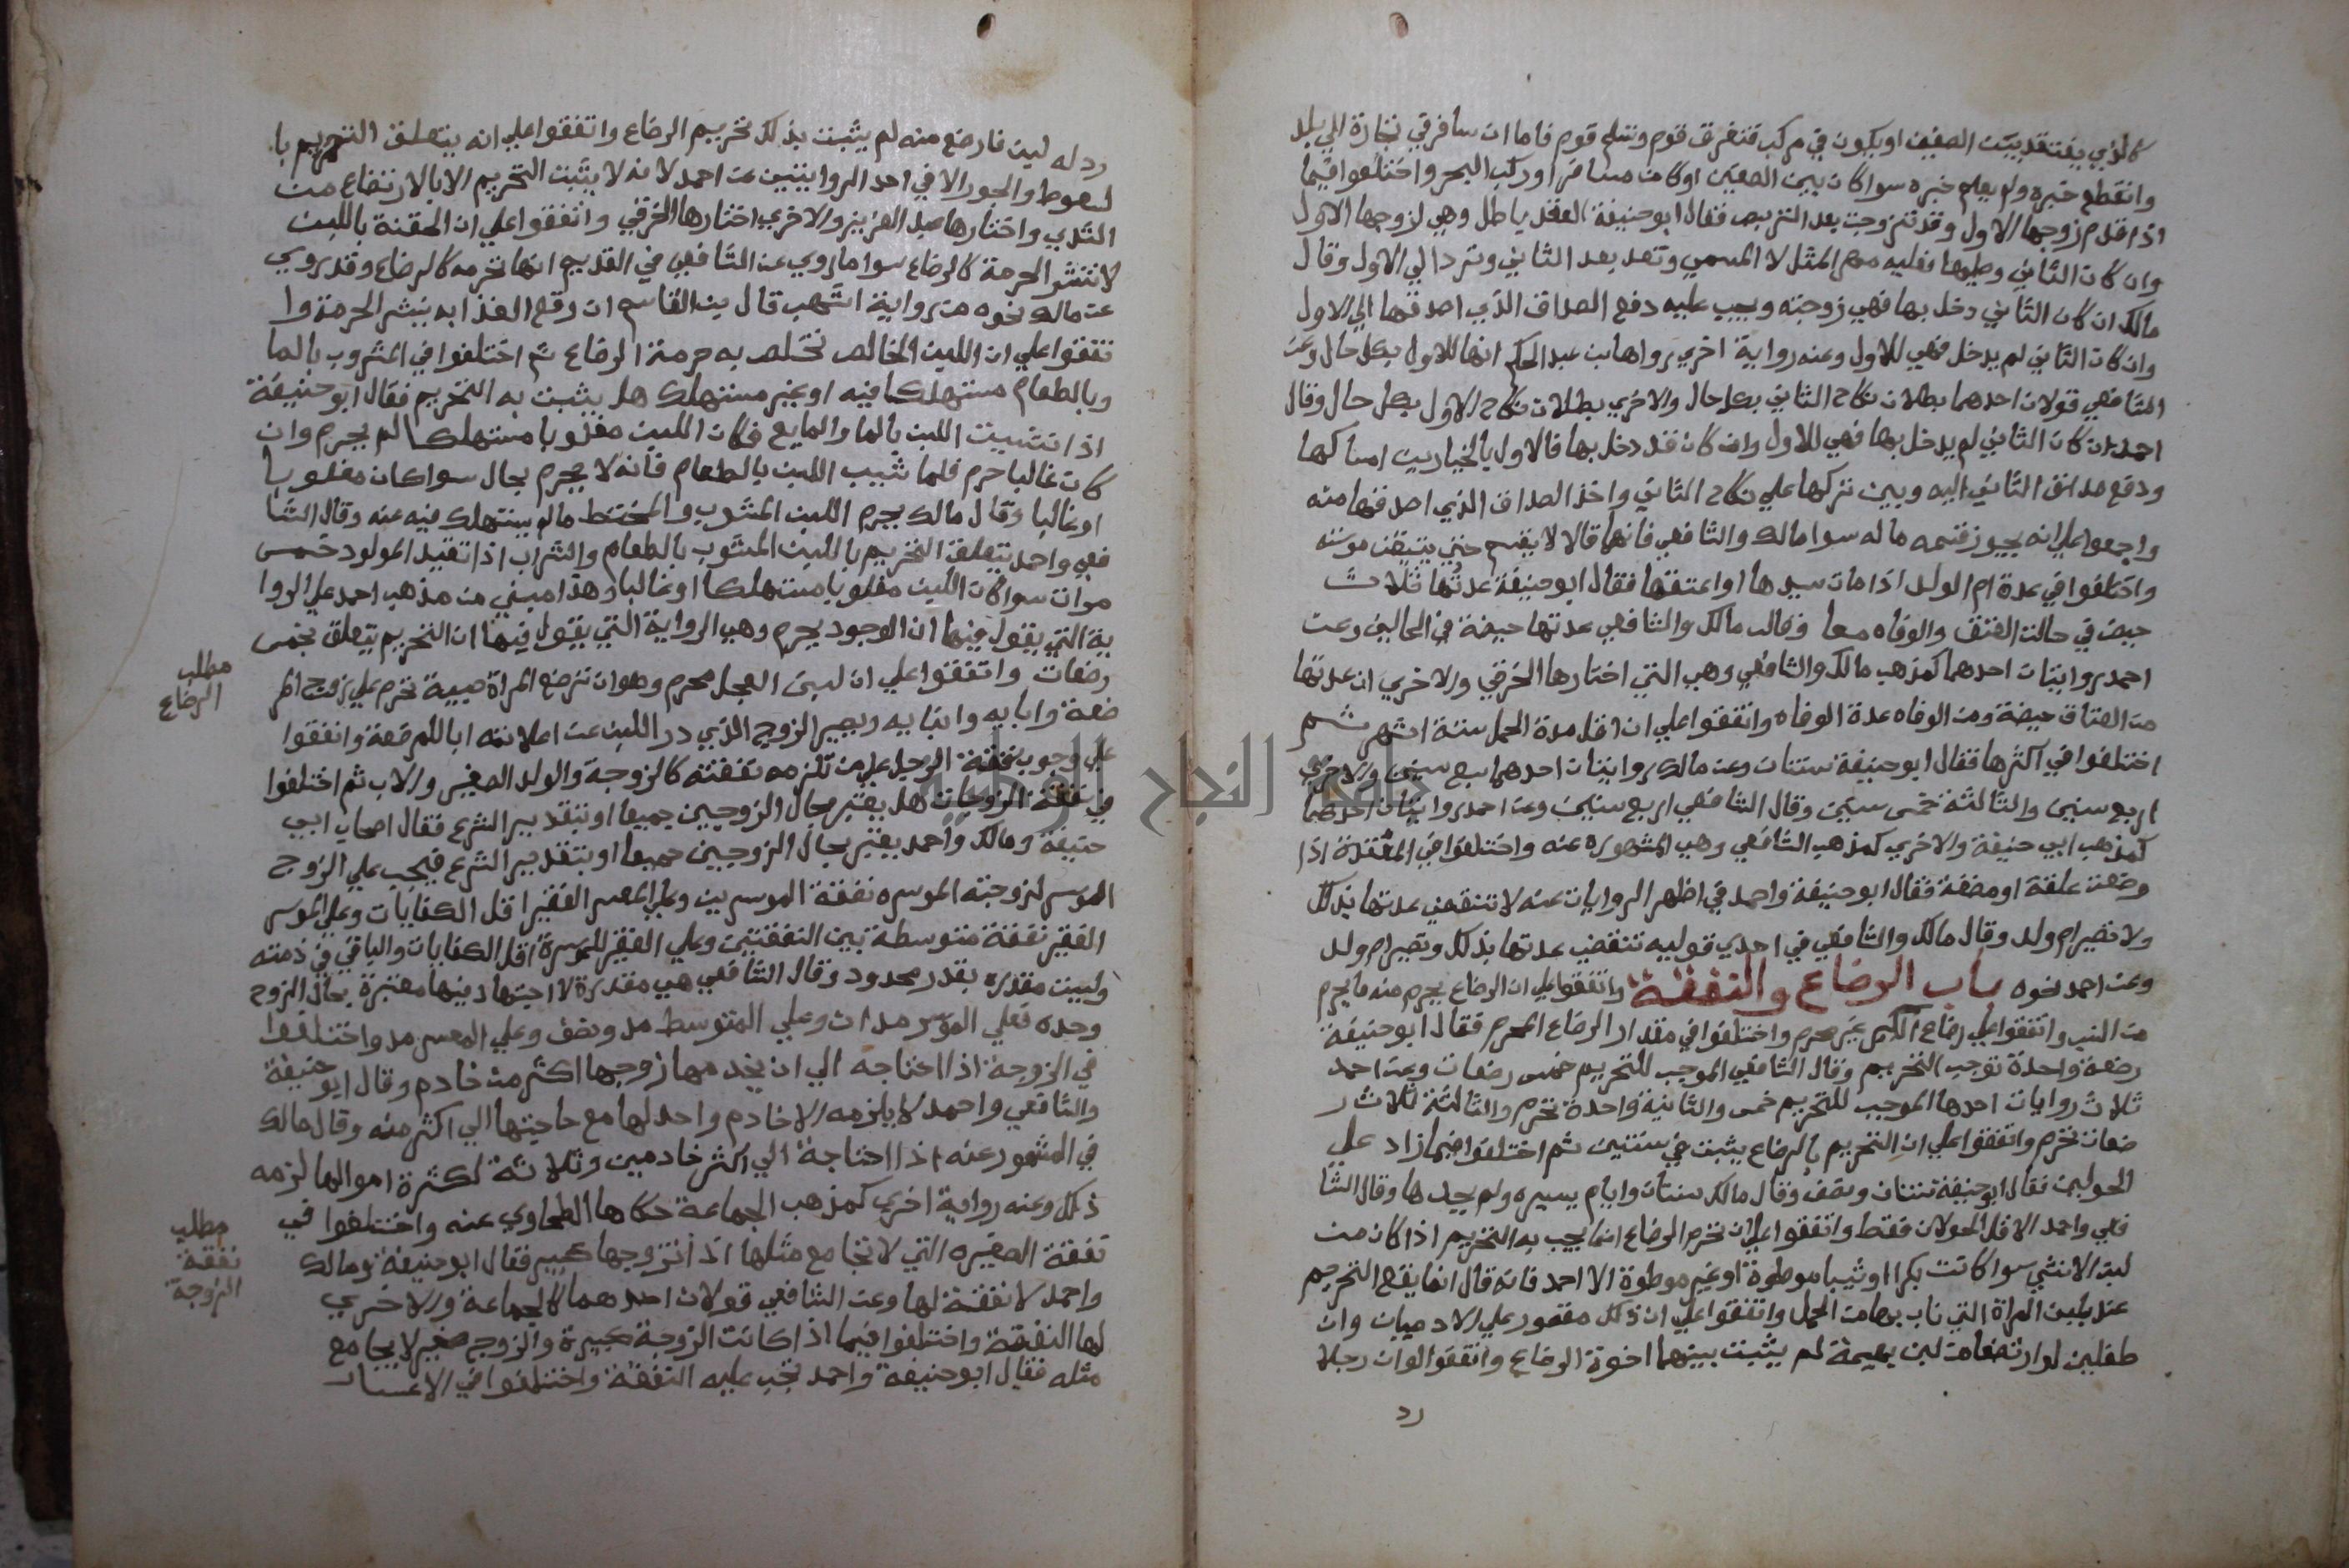 كالذي يفتقد بين الصفين او يكون في مركب فتغرق قوم وتسلم قوم فاما ان سافر في تجارة الي بلد
وانقطع خبره ولم يعلم خبره سوا كان بين الصفين او كان مسافرا او ركب البحر واختلفوا فيما
اذا قدم زوجها الاول وقد تزوجت بعد التربص فقال ابو حنيفة العقد باطل وهي لزوجها الاول
وان كان الثاني وطيها فعليه مهر المثل لا المسمي وتعد بعد الثاني وترد الي الاول وقال
مالك ان كان الثاني دخل بها فهي زوجته ويجب عليه دفع الصداق الذي اصدقها الي الاول
وان كان الثاني لم يدخل فهي للاول وعنه رواية اخري رواها بن عبد الحكم انها للاول بكل حال وعن
الشافعي قولان احدهما بطلان نكاح الثاني بكل حال والاخري بطلان نكاح الاول بكل حال وقال
احمد ان كان الثاني لم يدخل بها فهي للاول وان كان قد دخل بها فالاول بالخيار بين امساكها
ودفع صداق الثاني اليه وبين تركها علي نكاح الثاني واخذ الصداق الذي اصدقها منه
واجمعوا علي انه يجوز قسمه ماله سوا مالك والشافعي فانهما قالا لا يقسم حتي يتيقن موته
واختلفوا في عدة ام الولد اذا مات سيدها او اعتقها فقال ابو حنيفة عدتها ثلاث
حيض في حالت العتق والوفاه معا وقال مالك والشافعي عدتها حيضة في الحالين وعن
احمد روايتان احدهما كمذهب مالك والشافعي وهي التي اختارها الخرقي والاخري ان عدتها
من العتاق حيضة ومن الوفاه عدة الوفاه واتفقوا علي ان اقل مدة الحمل ستة اشهر ثم
اختلفوا في اكثرها فقال ابو حنيفة سنتان وعن مالك روايتان احدهما سبع سنين والاخري
اربع سنين والثالثة خمس سنين وقال الشافعي اربع سنين وعن احمد روايتان احدهما
كمذهب ابي حنيفة والاخري كمذهب الشافعي وهي المشهوره عنه واختلفوا في المعتدة اذا
وضعت علقة او مضغة فقال ابو حنيفة واحمد في اظهر الروايات عنه لا تنقضي عدتها بذلك
ولا تصير ام ولد وقال مالك والشافعي في احدي قوليه تنقضي عدتها بذلك وتصير ام ولد
وعن احمد نحوه باب الرضاع والنفقة واتفقوا علي ان الرضاع يحرم منه ما يحرم
من النسب واتفقوا علي رضاع الكبير غير محرم واختلفوا في مقدار الرضاع المحرم فقال ابو حنيفة
رضعة واحدة توجب التحريم وقال الشافعي الموجب للتحريم خمس رضعات وعن احمد
ثلاث روايات احدها الموجب للتحريم خمس والثانية واحدة تحرم والثالثة ثلاث ر
ضعات تحرم واتفقوا علي ان التحريم بالرضاع يثبت في سنتين ثم اختلفوا فيما زاد علي
الحولين فقال ابو حنيفة سنتان ونصف وقال مالك سنتان وايام يسيره ولم يحدها وقال الشا
فعي واحمد الاقل الحولان فقط واتفقوا علي ان تحرم الرضاع انما يجب به التحريم اذا كان من
لبن الانثي سوا كانت بكرا او ثيبا موطوة او غير موطوة الا احمد فانه قال انما يقع التحريم
عنده بلبن المراة التي ناب بها من الحمل واتفقوا علي ان ذلك مقصور علي الادميات وان
طفلين لو ارتضعا من لبن بهيمة لم يثبت بينهما اخوة الرضاع واتفقوا لو ان رجلا
رد
رد له لبن فارضع منه لم يثبت بذلك تحريم الرضاع واتفقوا علي انه يتعلق التحريم با
لسعوط والوجور الا في احد الروايتين عن احمد لانه لا يثبت التحريم الا بالارتضاع من
الثدي واختارها عبد العزيز والاخري اختارها الخرقي واتفقوا علي ان الحقنة باللبن
لا تنشر الحرمة كالرضاع سوا ما روي عن الشافعي في القديم انها تحرمه كالرضاع وقد روي
عن مالك نحوه من رواية اشهب قال بن القاسم ان وقع الغذا به ينشر الحرمة وا
تفقوا علي ان اللبن الخالص تحصل به حرمة الرضاع ثم اختلفوا في المشروب بالما
وبالطعام مستهلكا فيه او غير مستهلك هل يثبت به التحريم فقال ابو حنيفة
اذا شيبت اللبن بالما والمايع فكان اللبن مغلوبا مستهلكا لم يحرم وان
كان غالبا حرم فلما شيب اللبن بالطعام فانه لا يحرم بحال سوا كان مغلوبا
او غالبا وقال مالك يحرم اللبن المشوب والمختط مالم يستهلك فيه عنه وقال الشا
فعي واحمد يتعلق التحريم باللبن المشوب بالطعام والشراب اذا تقيد المولود خمس
مرات سوا كان اللبن مغلوبا مستهلكا او غالبا وهذا مبني من مذهب احمد علي الروا
ية التي يقول فيها ان الوجود يحرم وهي الرواية التي يقول فيها ان التحريم يتعلق بخمس
رضعات واتفقوا علي ان لبن الفحل محرم وهو ان ترضع المراة صبية تحرم علي زوج المر
ضعة وابايه وابنايه ويصير الزوج الذي در اللبن عن اعلانته ابا للمرضعة واتفقوا
علي وجوب نفقة الرجل علي من تلزمه نفقته كالزوجة والولد الصغير والاب ثم اختلفوا
في نفقة الزوجات هل يعتبر بحال الزوجين جميعا او بتقدير الشرع فقال اصحاب ابي
حنيفة ومالك واحمد يعتبر بحال الزوجين جميعا او بتقدير الشرع فيجب علي الزوج
الموسر لزوجته الموسره نفقة الموسرين وعلي المعسر الفقير اقل الكفايات وعلي الموسر
الفقير نفقة متوسطة بين النفقتين وعلي الفقير للموسرة اقل الكفايات والباقي في ذمته
وليست مقدره بقدر محدود وقال الشافعي هي مقدرة لا اجتهاد فيها معتبرة بحال الزوج
وحده فعلي الموسر مدان وعلي المتوسط مد ونصف وعلي المعسر مد واختلفوا
في الزوجة اذا احتاجه الي ان يخدمها زوجها اكثر من خادم وقال ابو حنيفة
والشافعي واحمد لا يلزمه الا خادم واحد لها مع حاجتها الي اكثر منه وقال مالك
في المشهور عنه اذا احتاجة الي اكثر خادمين وثلاثة لكثرة اموالها لزمه
ذلك وعنه رواية اخري كمذهب الجماعة حكاها الطحاوي عنه واختلفوا في
نفقة الصغيره التي لا تجامع مثلها اذا تزوجها كبير فقال ابو حنيفة ومالك
واحمد لا نفقة لها وعن الشافعي قولان احدهما كالجماعة والاخري
لها النفقة واختلفوا فيما اذا كانت الزوجة كبيرة والزوج صغير لا يجامع
مثله فقال ابو حنيفة واحمد تجب عليه النفقة واختلفوا في الاعسار
مطلب
الرضاع
مطلب
نفقة
الزوجة
جامعة النجاح الوطنية